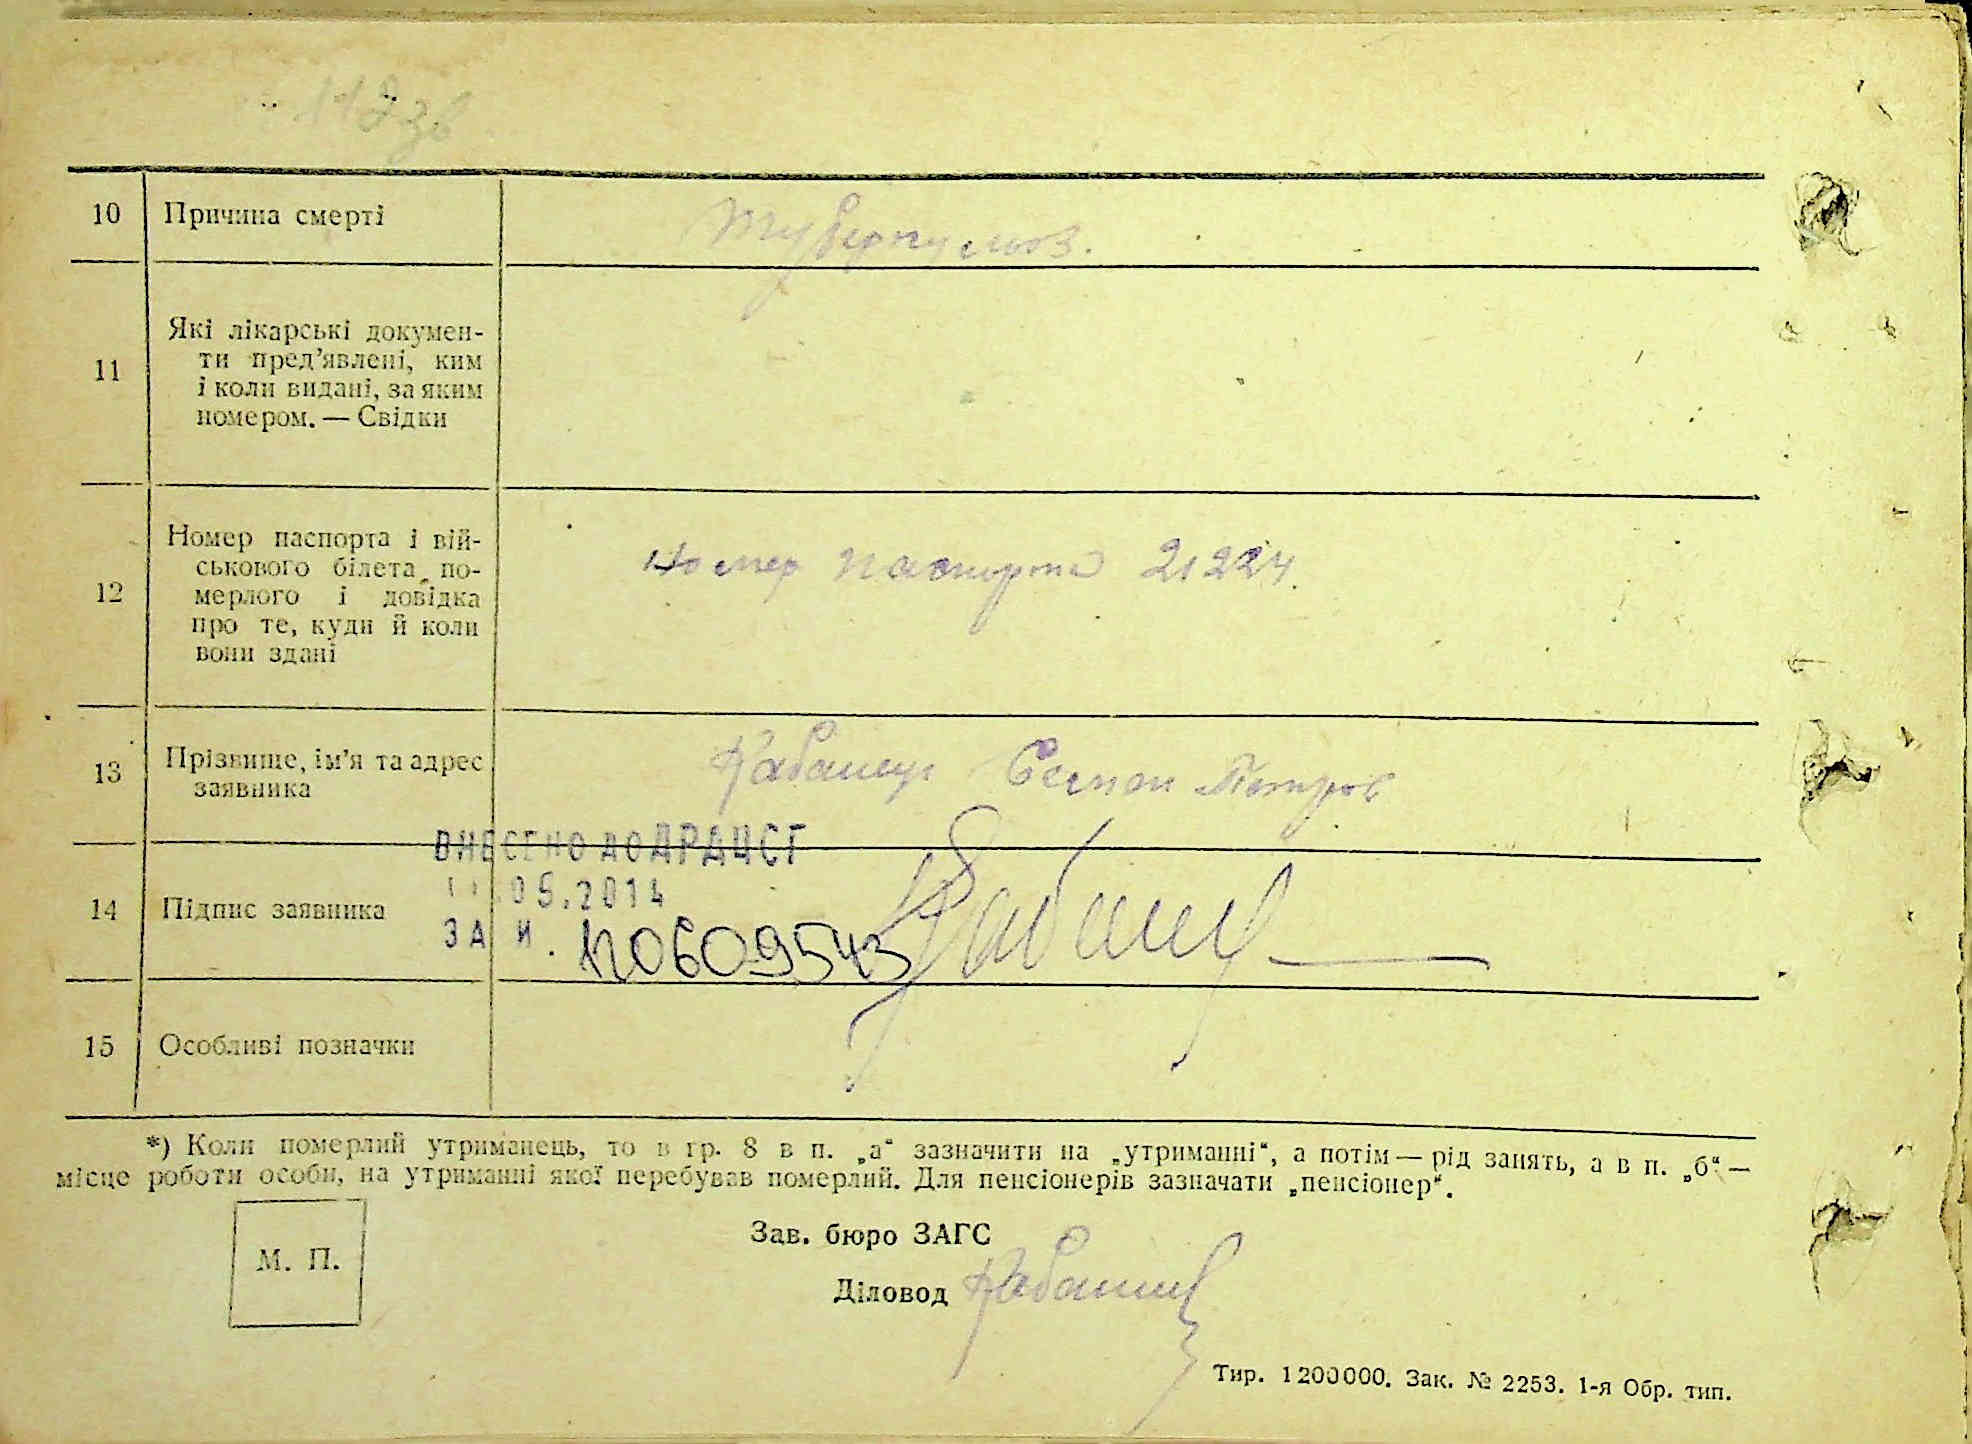 112зв
10 Причина смерті Туберкульоз.
11 Які лікарські докумен-
ти пред’явлені, ким
і коли видані, за яким
номером. — Свідки
12 Номер паспорта і вій-
ськового білета по-
мерлого і довідка
про те, куди й коли
вони здані
Номер паспорта 21224.
13 Прізвище, ім’я та адрес
заявника
Петров
ВНЕСЕНО ДО ДРАЦСГ
.05.2014
14 Підпис заявника
ЗА И.
15 Особливі позначки
*) Коли померлий утриманець, то в гр. 8 в п. „а“ зазначити на „утриманні“, а потім — рід занять, а в п. „б“ —
місце роботи особи, на утриманні якої перебував померлий. Для пенсіонерів зазначати „пенсіонер“.
М. П.
Зав. бюро ЗАГС
Діловод
Тир. 1200000. Зак. № 2253. 1-я Обр. тип.